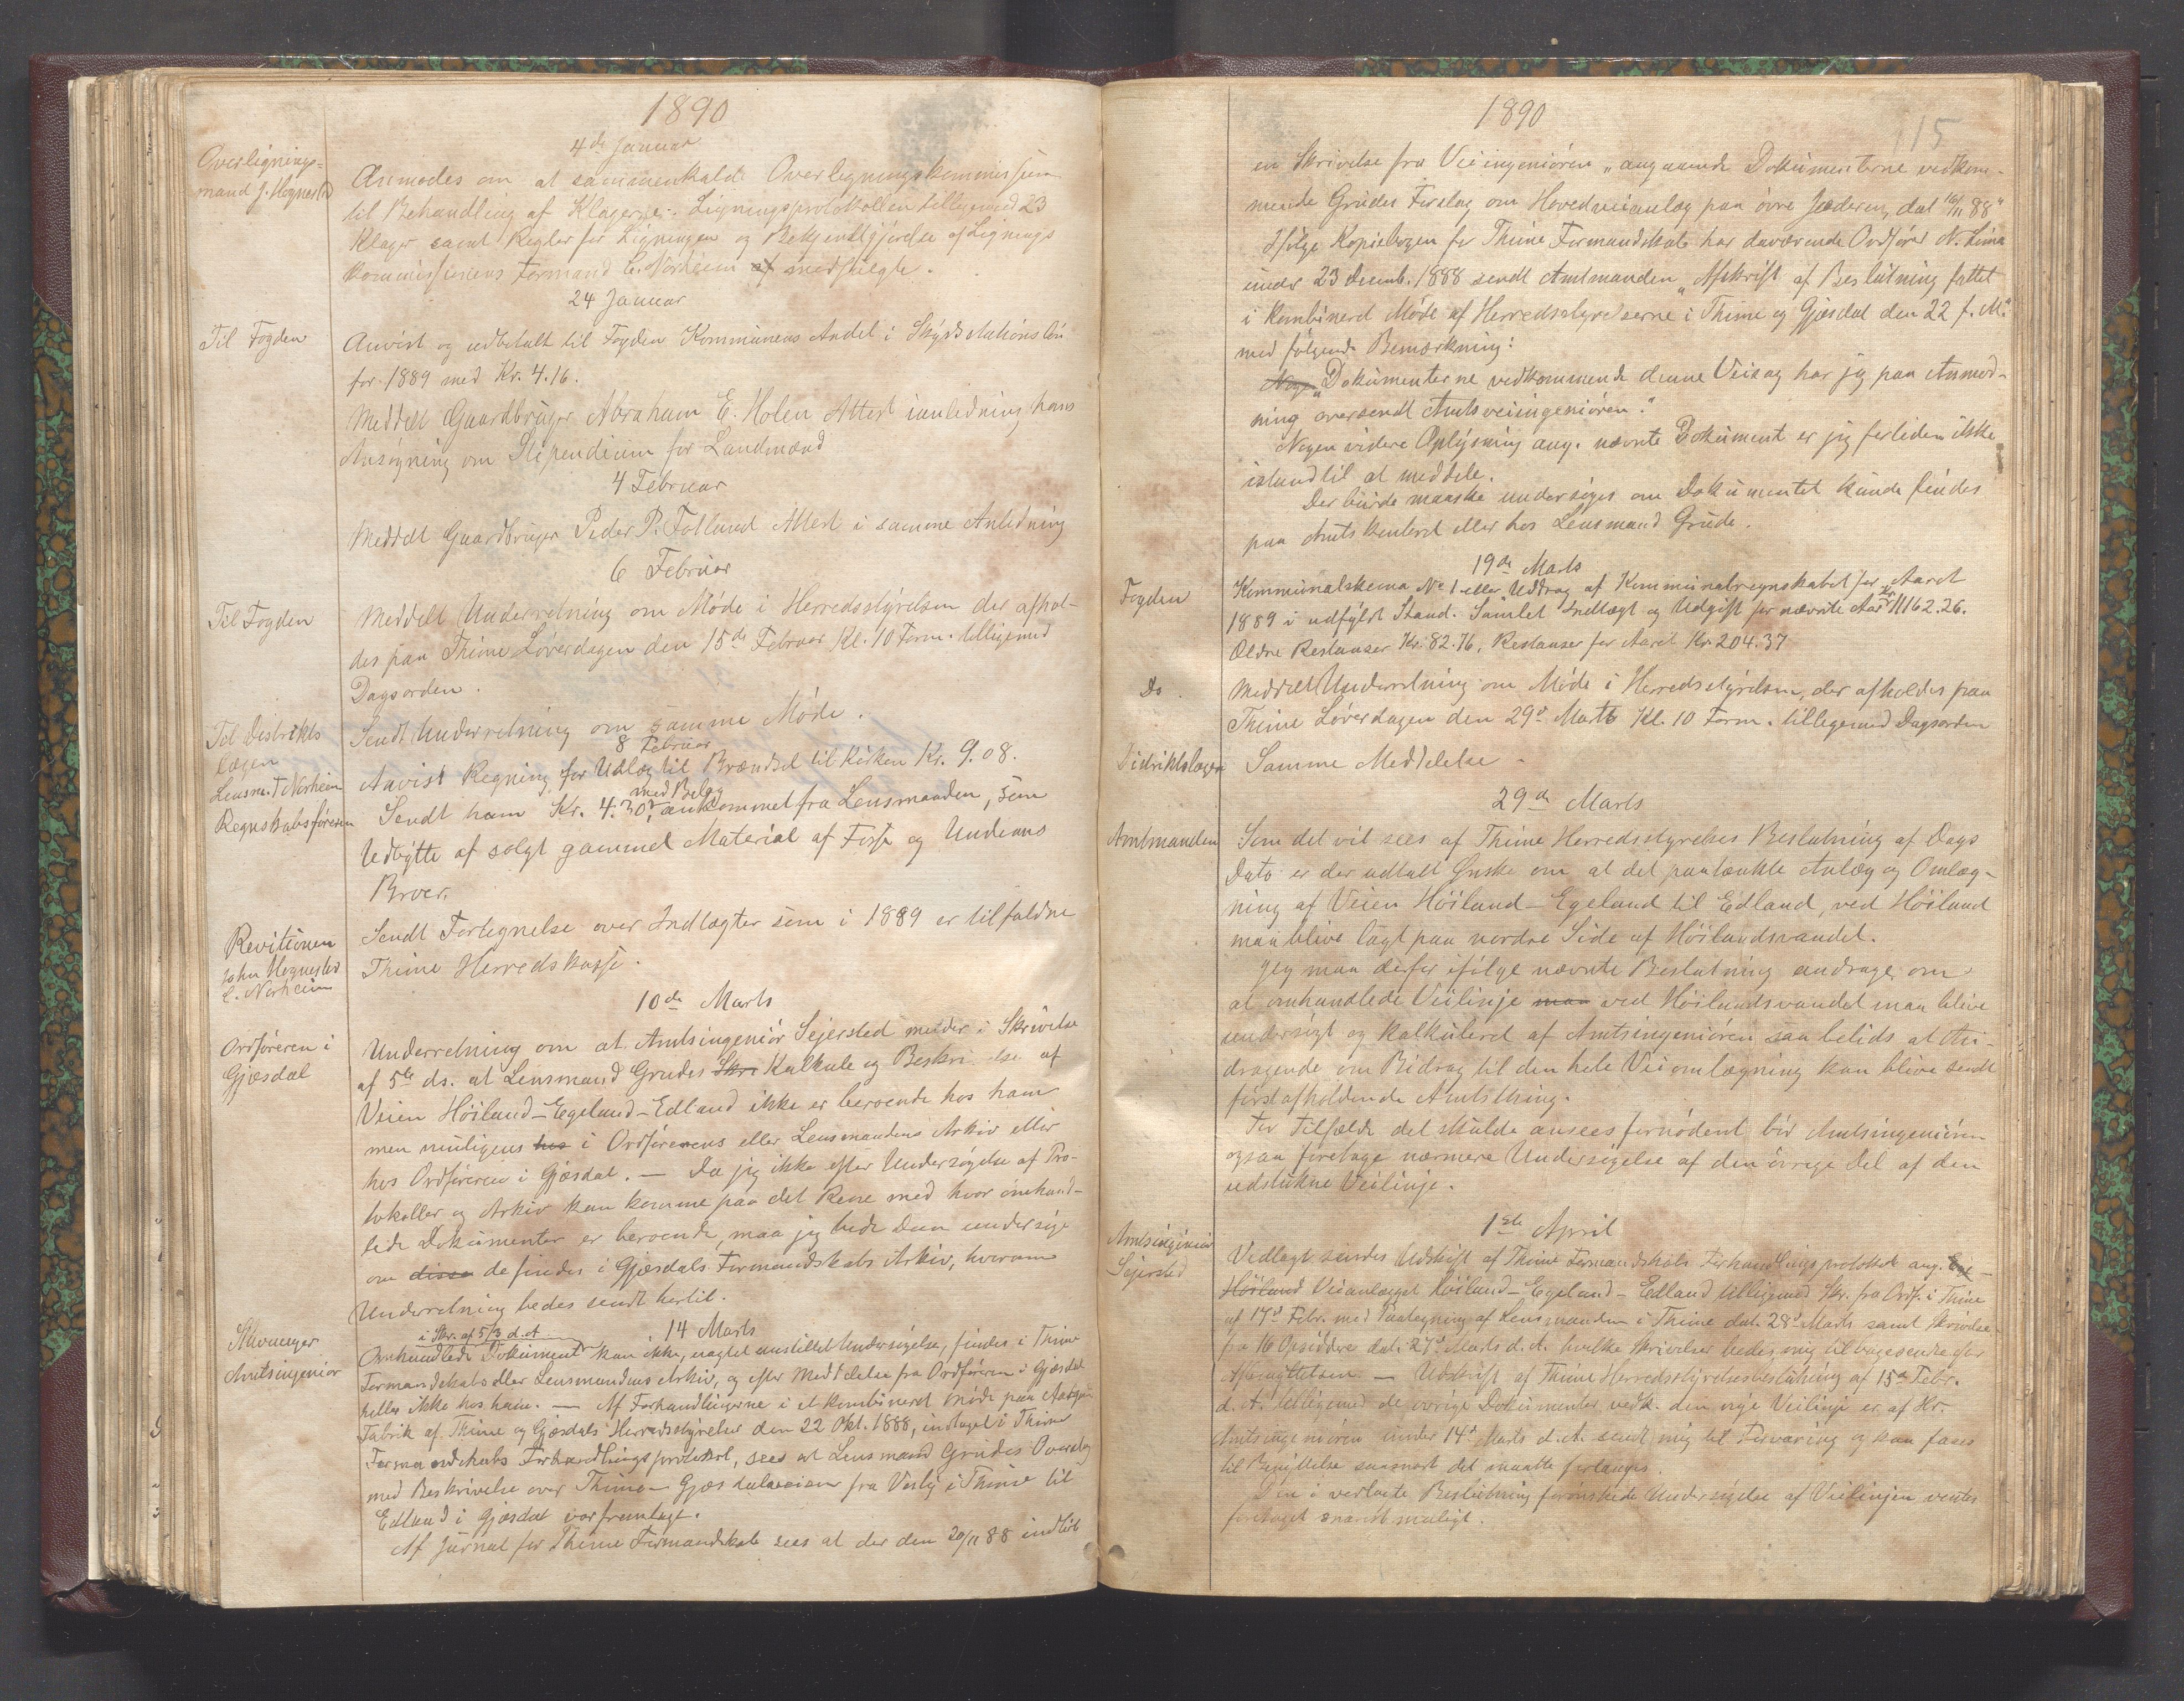 1890
4de Januar
Overlignings=
mand J. Hognestad
Anmodes om at sammenkalde Overligningskommissjonen
til Behandling af Klagerne. Ligningsprotokollen tilligemed 23
Klager samt Regler for Ligningen og Bekjendtgjörelse af Lignings
kommissionens Formand E. Norheim af medfulgte.
24 Januar
Til Fogden
Anvist og udbetalt til Fogden Kommunens Andel i Skydsstationslön
for 1889 med Kr. 4.16.
Meddelt Gaardbruger Abraham E. Holen Attest i anledning hans
Ansögning om Stipendium for Landmænd
4 Februar
Meddelt Gaardbruger Peder P. Fotland Attest i samme Anledning
6 Februar
Til Fogden
Meddelt Underretning om Möde i Herredsstyrelsen der afhol-
des paa Thime Löverdagen den 15de Februar Kl. 10 Form. tilligemed
Dagsorden.
Til Distrikts
lægen
Sendt Underretning om samme Möde.
8 Februar
Lensm. T Norheim
Anvist Regning for Udlæg til Brændsel til Kirken Kr. 9.08.
Regnskabsföreren
med Belag
Sendt ham Kr. 4.30, ankommet fra Lensmanden, som
Udbytte af solgt gammel Material af Fosse og Undeims
Broer.
Revitionen
John Hognestad
E. Norheim
Sendt Fortegnelse over Indtægter som i 1889 er tilfaldne
Thime Herredskasse.
10de Marts
Ordföreren i
Gjæsdal
Underretning om at Amtsingeniör Sejersted melder i Skrivelse
af 5te ds. at Lensmand Grudes Skri Kalkule og Beskrivelse af
Veien Höiland-Egeland-Edland ikke er beroende hos ham
men muligens hos i Ordförerens eller Lensmandens Arkiv eller
hos Ordföreren i Gjæsdal. — Da jeg ikke efter Undersögelse af Pro-
tokoller og Arkiv kan komme paa det Rene med hvor omhand-
lede Dokumenter er beroende, maa jeg bede Dem undersöge
om disse de findes i Gjæsdals Formandskabs Arkiv, hvorom
Underretning bedes sendt hertil.
14 Marts
Stavanger
Amtsingeniör
i Skr. af 5/3 d. A
Omhandlede Dokument kan ikke, uagtet anstillet Undersögelse, findes i Thime
Formandskabs eller Lensmandens Arkiv, og efter Meddelelse fra Ordföreren i Gjæsdal
heller ikke hos ham. — Af Forhandlingerne i et kombineret Möde paa Aalgaard
Fabrik af Thime og Gjæsdals Herredsstyrelser den 22 Okt. 1888, indtaget i Thime
Formandskabs Forhandlingsprotokol, sees at Lensmand Grudes Overslag
med Beskrivelse over Thime-Gjæsdalveien fra Veslÿ i Thime til
Edland i Gjæsdal var fremlagt.
Af Jurnal for Thime Formandskab sees at der den 20/11 88 indlöb
1890
115
en Skrivelse fra Veiingeniören „angaaende Dokumenterne vedkom-
mende Grudes Forslag om Hovedveianlæg paa övre Jæderen, dat 16/11 88"
Ifölge Kopiebogen for Thime Formandskab har daværende Ordförer N. Lima
under 23 Decemb. 1888 sendt Amtmanden „Afskrift af Beslutning fattet
i kombinerd Möde af Herredsstyrelserne i Thime og Gjæsdal den 22 f. M."
med fölgende Bemærkning:
Noge „Dokumenterne vedkommende denne Veisag har jeg paa Anmod-
ning oversendt Amtsveiingeniören."
Nogen videre Oplysning ang. nævnte Dokument er jeg fortiden ikke
istand til at meddele.
Der burde maaske undersöges om Dokumentet kunde findes
paa Amtskontoret eller hos Lensmand Grude.
19de Marts
Fogden
Kommunalskema No 1 eller Uddrag af Kommunalregnskabet for Aaret
1889 i udfyldt Stand. Samlet Indtægt og Udgift for nævnte Aar Kr 11162.26.
Ældre Restanser Kr. 82.76, Restanser for Aaret Kr 204.37
Do.
Meddelt Underretning om Möde i Herredsstyrelsen, der afholdes paa
Thime Löverdagen den 29de Marts Kl. 10 Form. tilligemed Dagsorden
Distriktslægen
Samme Meddelelse.
29de Marts
Amtmanden
Som det vil sees af Thime Herredsstyrelses Beslutning af Dags
Dato er der udtalt Önske om at det paatænkte Anlæg og Omlæg-
ning af Veien Höiland-Egeland til Edland, ved Höiland
maa blive lagt paa nordre Side af Höilandsvandet.
Jeg maa derfor ifölge nævnte Beslutning andrage om
at omhandlede Veilinje maa ved Höilandsvandet maa blive
undersögt og kalkuleret af Amtsingeniören saa betids at An-
dragende om Bidrag til den hele Veiomlægning kan blive sendt
förstafholdende Amtsthing.
For Tilfælde det skulde ansees fornödent bör Amtsingeniören
ogsaa foretage nærmere Undersögelse af den övrige Del af den
udstukne Veilinje.
1ste April
Amtsingeniör
Sejersted
Vedlagt sendes Udskrift af Thime Formandskabs Forhandlingsprotokol ang. Ege-
Höiland Veianlægget Höiland-Egeland-Edland tilligemed Skr. fra Ordf. i Thime
af 17de Febr. med Paategning af Lensmanden i Thime dat. 28de Marts samt Skrivelse
fra 16 Opsiddere dat. 27de Marts d. A. hvilke Skrivelser bedes mig tilbagesendt efter
Afbenyttelsen. — Udskrift af Thime Herredsstyrelsesbeslutning af 15de Febr.
d. A. tilligemed de övrige Dokumenter vedk. den nye Veilinje er af Hr.
Amtsingeniören under 14de Marts d. A. sendt mig til Forvaring og kan faaes
til Benyttelse saasnart det maatte forlanges.
Den i vedlagte Beslutning forönskede Undersögelse af Veilinjen ventes
foretaget snarest muligt.